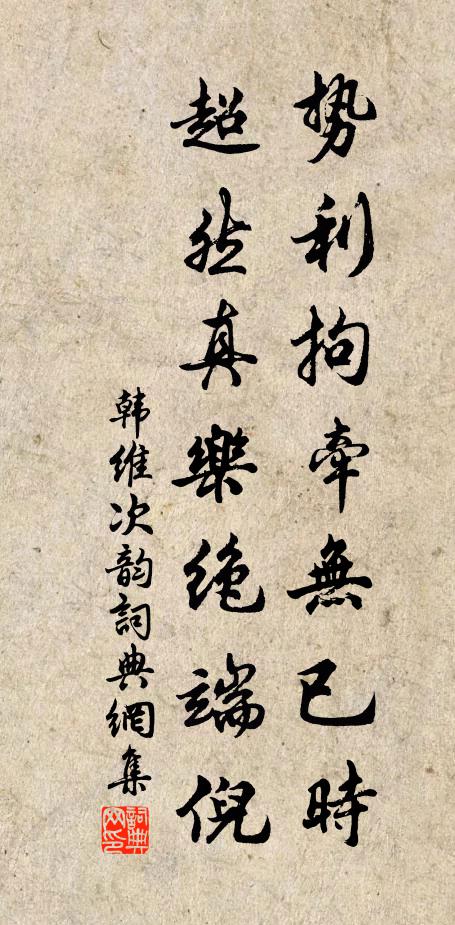 勢利拘牽無已時
超然真樂絶端倪
韩維次韵詞典網集
詞典網印